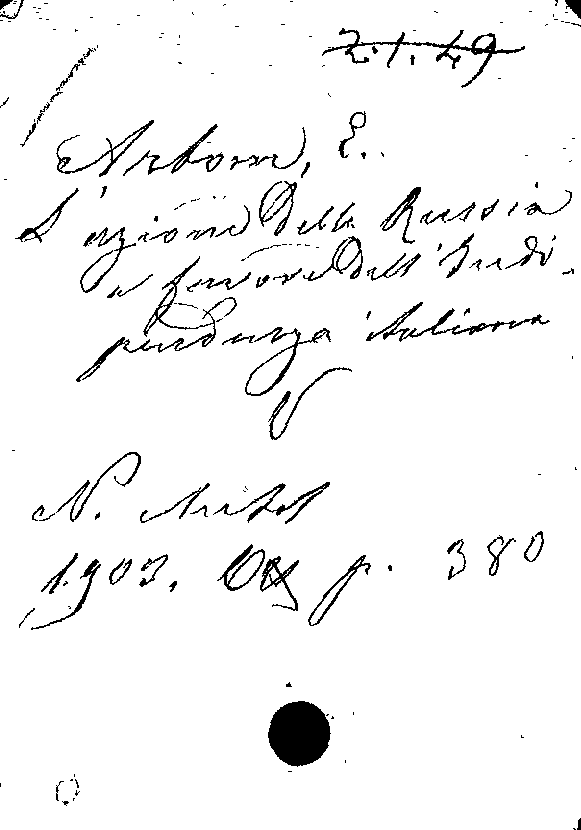 2.1.49
Artom, E.
L'azione della Russia
a favore dell'Indi-
pendenza italiana
V
N. Antol
1903. p. 380